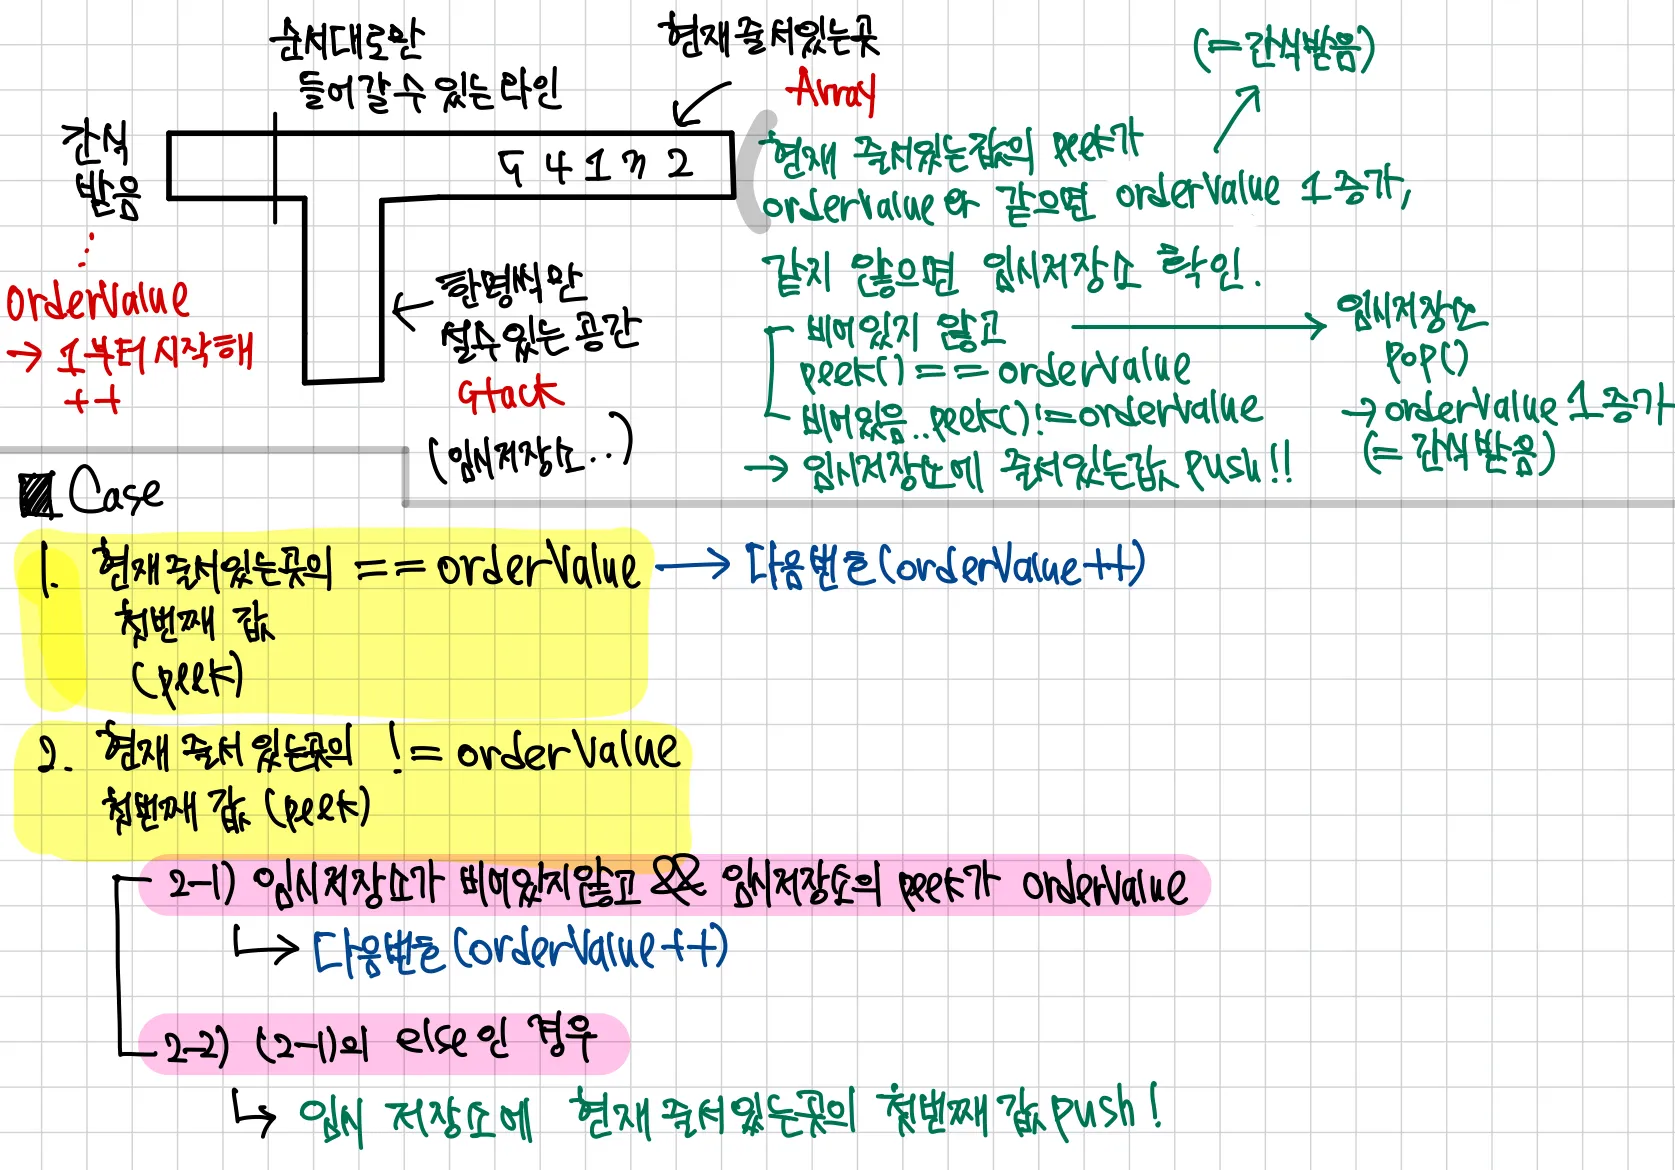 순서대로만
들어갈 수 있는 라인
현재 줄서있는 곳
Array
(= 간식받음)
간식
받음
5 4 1 3 2
현재 줄서있는 값의 peek가
orderValue와 같으면 orderValue 1 증가,
같지 않으면 임시저장소 확인.
비어있지 않고
peek() == orderValue
비어있음.. peek() != orderValue
→ 임시저장소에 줄서있는값 push!!
임시저장소
pop()
→ orderValue 1 증가
(= 간식받음)
orderValue
→ 1부터 시작해
++
한명씩만
설수있는 공간
Stack
(임시저장소..)
Case
1. 현재 줄서있는곳의 == orderValue → 다음번호(orderValue++)
첫번째 값
(peek)
2. 현재 줄서있는곳의 != orderValue
첫번째 값 (peek)
2-1) 임시저장소가 비어있지않고 && 임시저장소의 peek가 orderValue
↳ 다음번호(orderValue++)
2-2) (2-1)의 else인 경우
↳ 임시 저장소에 현재 줄서있는곳의 첫번째 값 push!